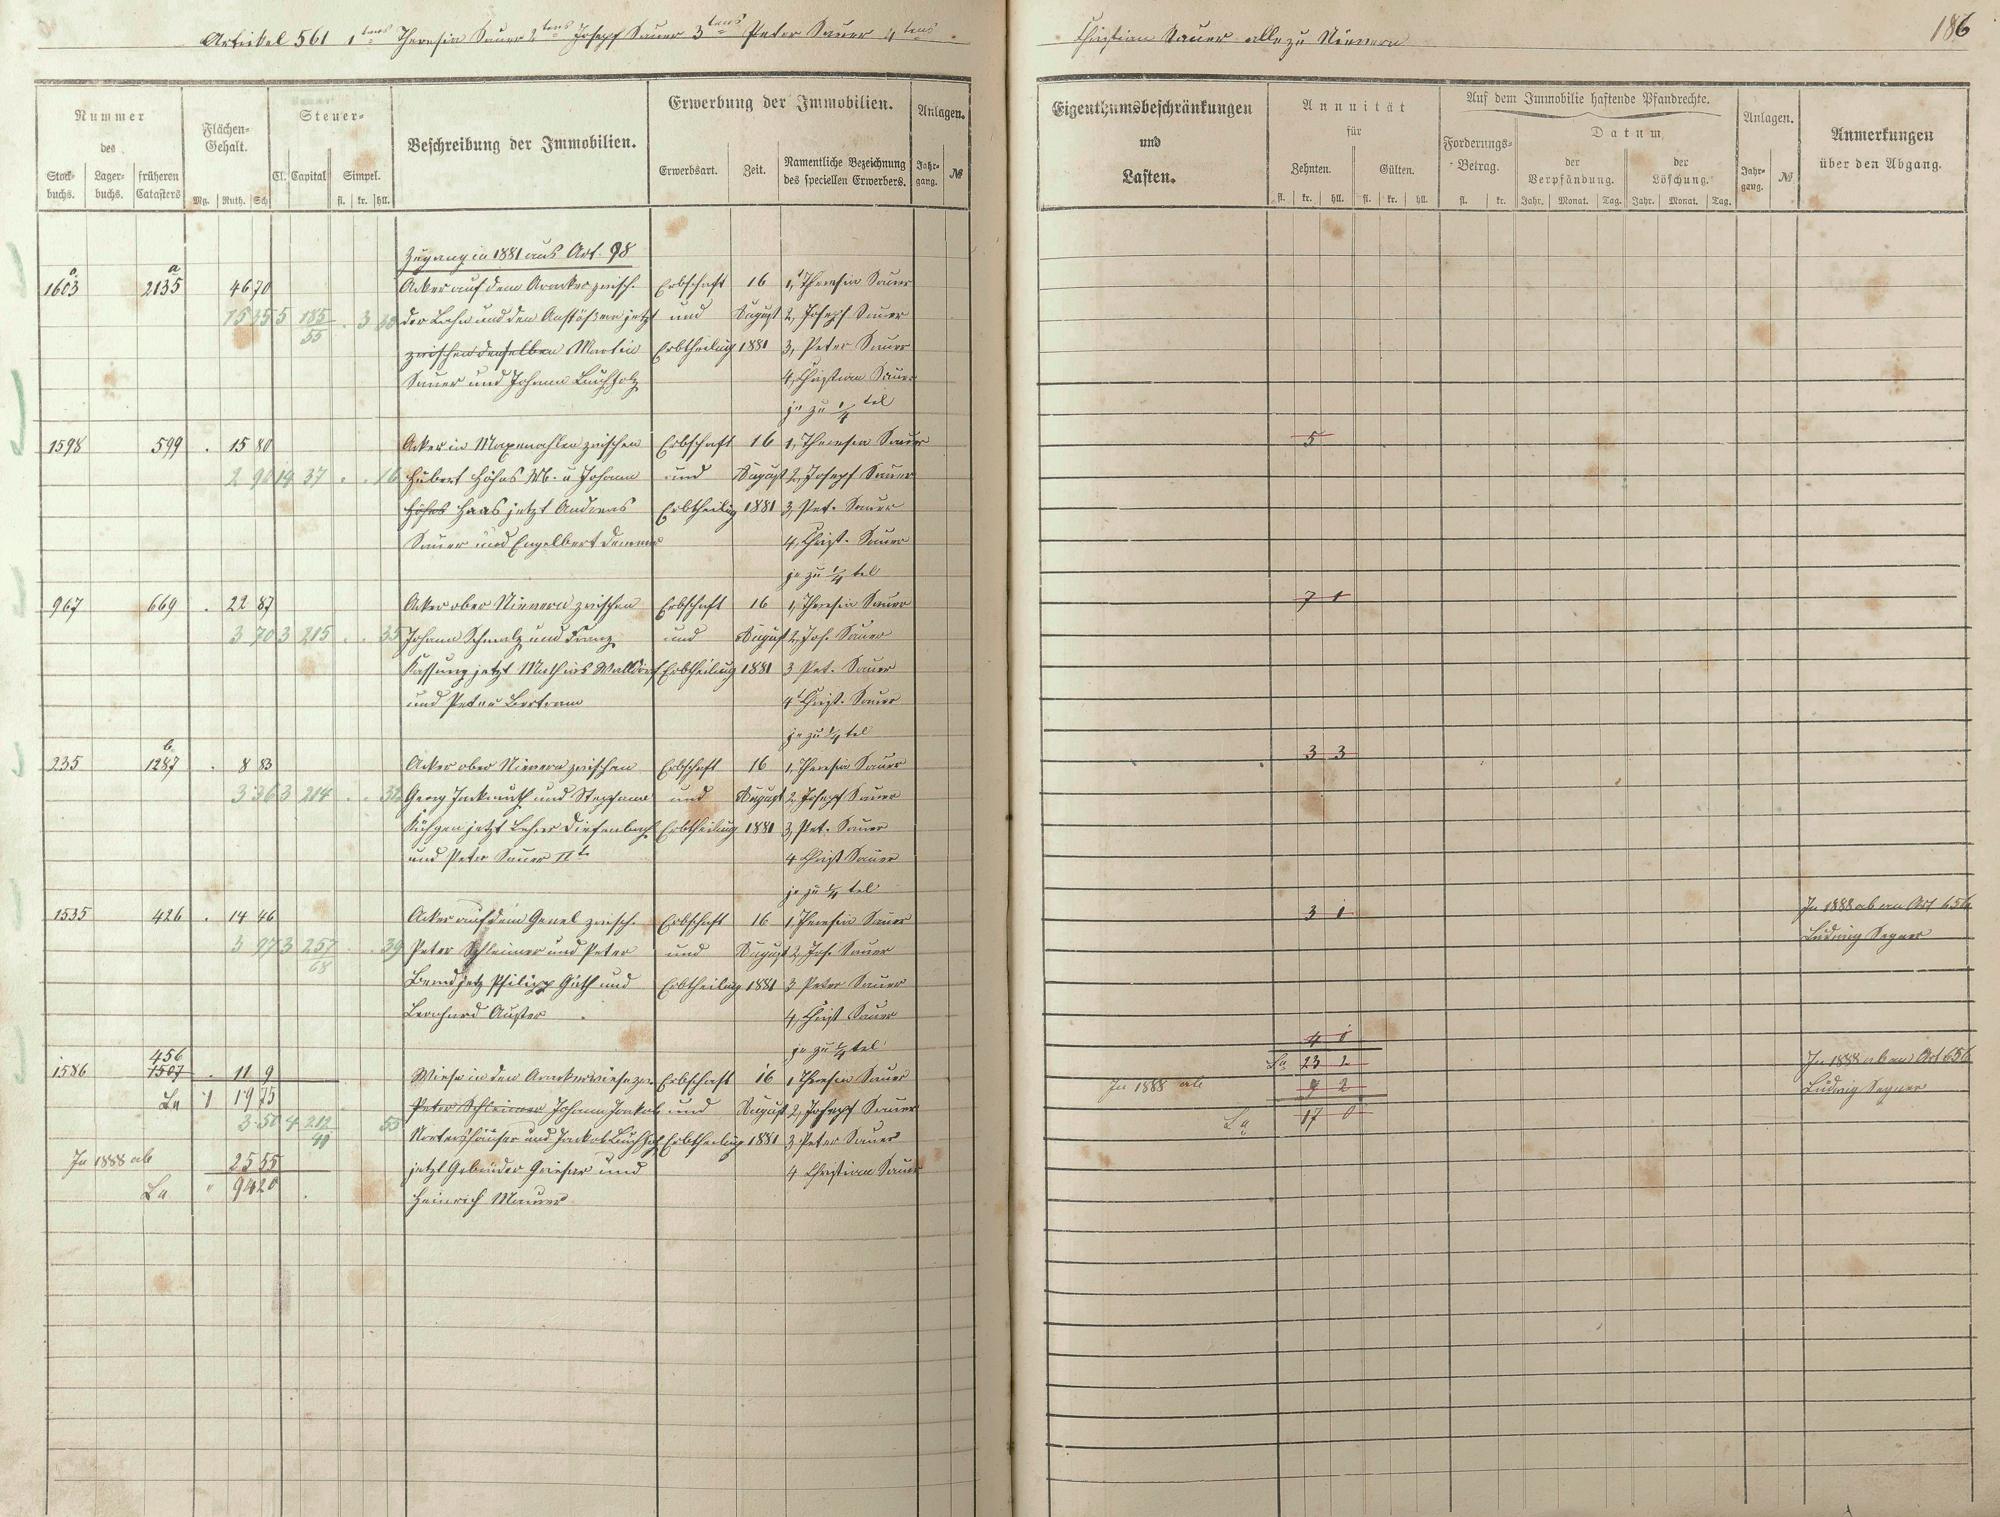 Artikel 561 1tens Theresia Sauer 2tens Joseph Sauer 3tens Peter Sauer 4tens
Christian Sauer alle zu Nievern
186
Nummer
des
Stock-
buchs.
Lager-
buchs.
früheren
Catasters
Flächen-
Gehalt.
Mg. Ruth. Sch
Steuer-
Cl. Capital Simpel.
fl. kr. hll.
Beschreibung der Immobilien.
Erwerbung der Immobilien.
Erwerbsart. Zeit.
Namentliche Bezeichnung
des speciellen Erwerbers.
Anlagen.
Jahr-
gang. №
Eigenthumsbeschränkungen
und
Lasten.
Annuität
für
Zehnten. Gülten.
fl. kr. hll. fl. kr. hll.
Auf dem Immobilie haftende Pfandrechte.
Forderungs-
Betrag.
fl. kr.
Datum,
der
Verpfändung.
der
Löschung.
Jahr. Monat. Tag. Jahr. Monat. Tag.
Anlagen.
Jahr-
gang. №
Anmerkungen
über den Abgang.
Zugang in 1881 aus Art. 98
1603 a 2135 a 46 70 Acker auf dem zwisch. Erbschaft 16 1, Theresia Sauer
5 185 3 der Lahn und den Anstößern jetzt und August 2, Joseph Sauer
55 zwischen denselben Martin Erbtheilung 1881 3, Peter Sauer
Sauer und Johann Buchholz 4, Christian Sauer
je zu 1/4 tel
1598 599 . 15 80 Acker in zwischen Erbschaft 16 1, Theresia Sauer 5
2 90 14 37 . . 16 Hubert Höhns Wb. u Johann und August 2, Joseph Sauer
Höhns Haas jetzt Andreas Erbtheilg 1881 3, Pet. Sauer
Sauer und Engelbert Demmer 4, Christ. Sauer
je zu 1/4 tel
967 669 . 22 87 Acker ober Nievern zwischen Erbschaft 16 1, Theresia Sauer 7 1
3 70 3 215 . . 35 Johann Schmalz und Franz und August 2, Jos. Sauer
jetzt Mathias Walldorf Erbtheilung 1881 3 Pet. Sauer
und Peter Bertram 4 Christ. Sauer
je zu 1/4 tel
235 1287 b . 8 83 Acker ober Nievern zwischen Erbschaft 16 1, Theresia Sauer 3 3
3 36 3 214 . . 32 Georg und Stephan und August 2, Joseph Sauer
jetzt Lehrer Diefenbach Erbtheilung 1881 3, Pet. Sauer
und Peter Sauer IIt 4 Christ Sauer
je zu 1/4 tel
1535 426 . 14 46 Acker auf dem zwisch. Erbschaft 16 1, Theresia Sauer 3 1 In 1888 ab an Art 656
3 97 3 257 . . 39 Peter Schleimer und Peter und August 2, Jos. Sauer Ludwig Segner
68 jetz Philipp Güth und Erbtheilung 1881 3 Peter Sauer
Bernhard Auster 4, Christ Sauer
je zu 1/4 tel
4 1
1586 456 1507 . 11 9 Wiese in den Erbschaft 16 1 Theresia Sauer La 23 2 In 1888 ab an Art 656
La 1 19 75 Peter Schleimer Johann Jakob und August 2, Joseph Sauer In 1888 ab 9 2 Ludwig Segner
3 50 4 212 55 Nortershäuser und Jackob Buchholz Erbtheilung 1881 3 Peter Sauer La 17 0
40
In 1888 ab 25 55 jetzt Gebrüder und 4 Christian Sauer
La " 94 20 Heinrich Maurer